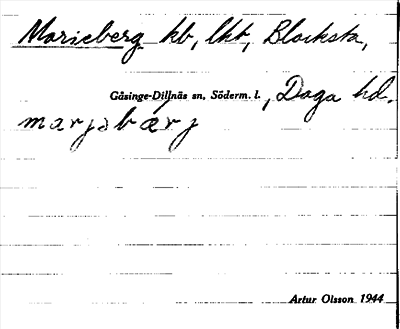 Marieberg kb, lht, Blacksta,
Gåsinge-Dillnäs sn, Söderm. l., Daga hd.
marjəbærj
Artur Olsson 1944